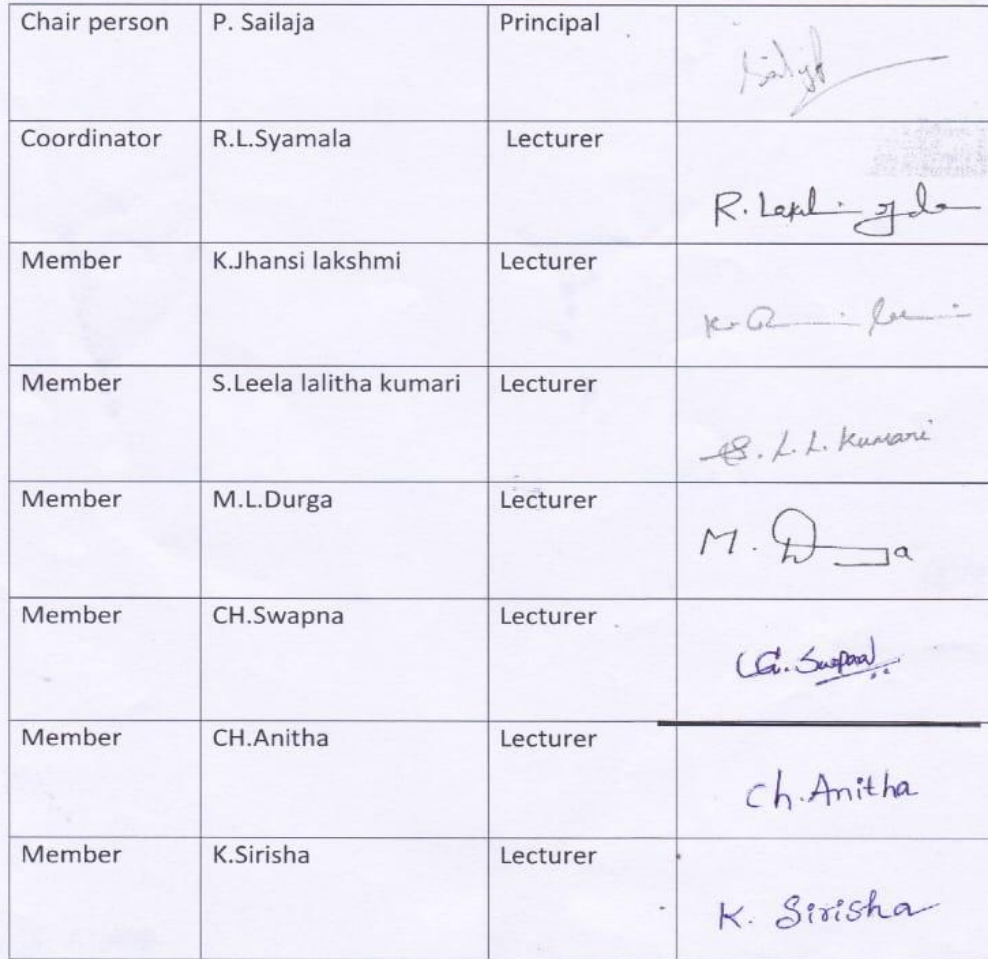 Chair person P. Sailaja Principal
Coordinator R.L.Syamala Lecturer
R.
Member K.Jhansi lakshmi Lecturer
K.
Member S.Leela lalitha kumari Lecturer
S. L. L. Kumari
Member M.L.Durga Lecturer
M. D
Member CH.Swapna Lecturer
Swapna
Member CH.Anitha Lecturer
Ch. Anitha
Member K.Sirisha Lecturer
K. Sirisha